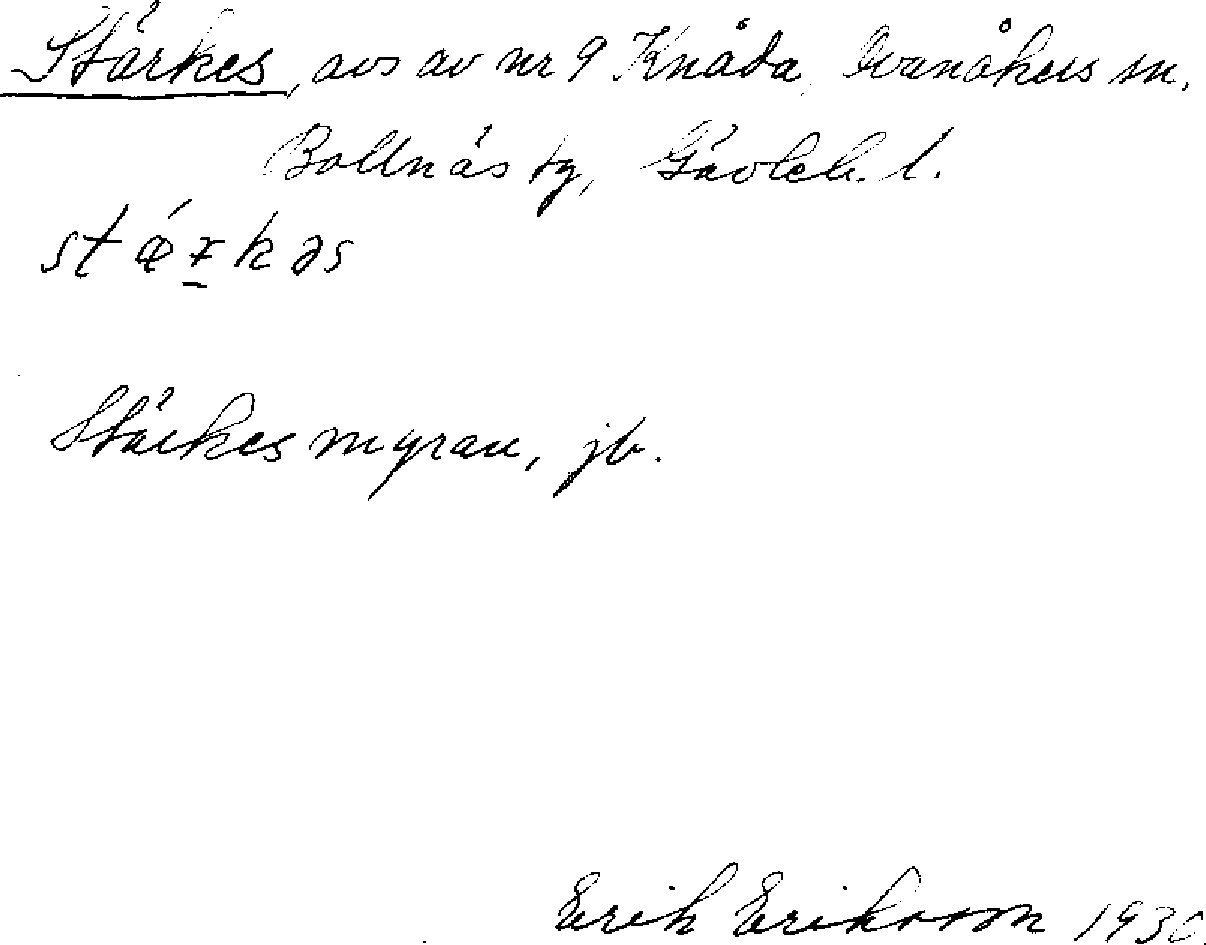 Stärkes, avs av nr 9 Knåda, Ovanåkers sn.
Bollnäs tg, Gävleb. l.
stæ´rkəs
Stärkesmyran, jb.
Erik Eriksson 1930.